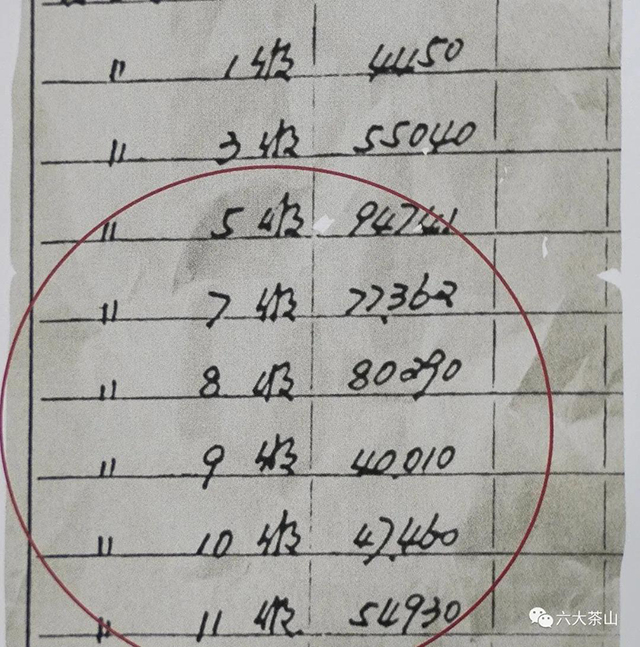 " 1级 44150
" 3级 55040
" 5级 94741
" 7级 77.362
" 8级 80290
" 9级 40.010
" 10级 47.460
" 11级 54930
六大茶山